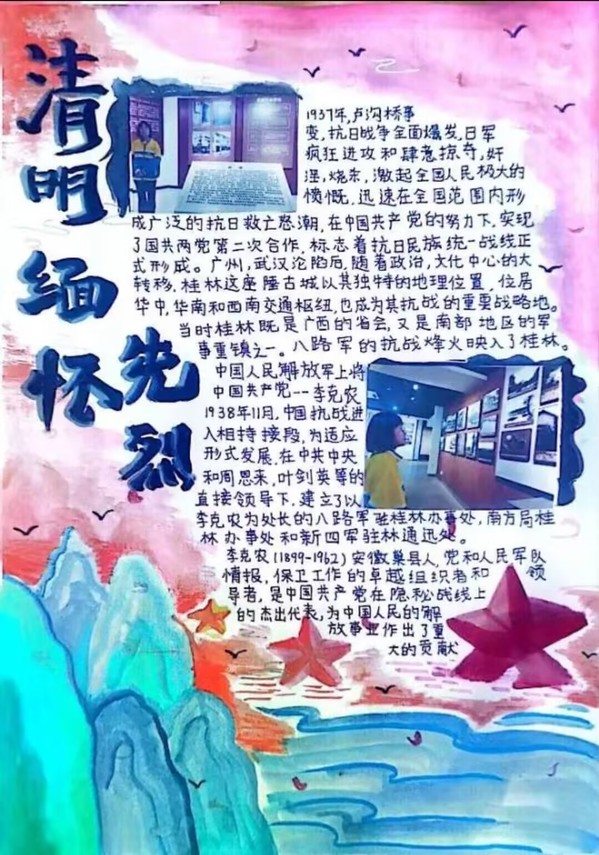 清明
缅怀
先烈
1937年,卢沟桥事
变,抗日战争全面爆发,日军
疯狂进攻和肆意掠夺,奸
淫,烧杀,激起全国人民极大的
愤慨,迅速在全国范围内形
成广泛的抗日救亡怒潮,在中国共产党的努力下,实现
了国共两党第二次合作,标志着抗日民族统一战线正
式形成。广州,武汉沦陷后,随着政治,文化中心的大
转移,桂林这座 古城以其独特的地理位置,位居
华中,华南和西南交通枢纽,也成为其抗战的重要战略地。
当时桂林既是广西的省会,又是南部地区的军
事重镇之一。八路军的抗战烽火映入了桂林。
中国人民解放军上将
中国共产党---李克农
1938年11月,中国抗战进
入相持接段,为适应
形式发展,在中共中央
和周恩来,叶剑英等的
直接领导下,建立了以
李克农为处长的八路军驻桂林办事处,南方局桂
林办事处和新四军驻林通迅处。
李克农(1899-1962)安徽巢县人,党和人民军队
情报,保卫工作的卓越组织者和 领
导者,是中国共产党在隐秘战线上
的杰出代表,为中国人民的解
放事业作出了重
大的贡献